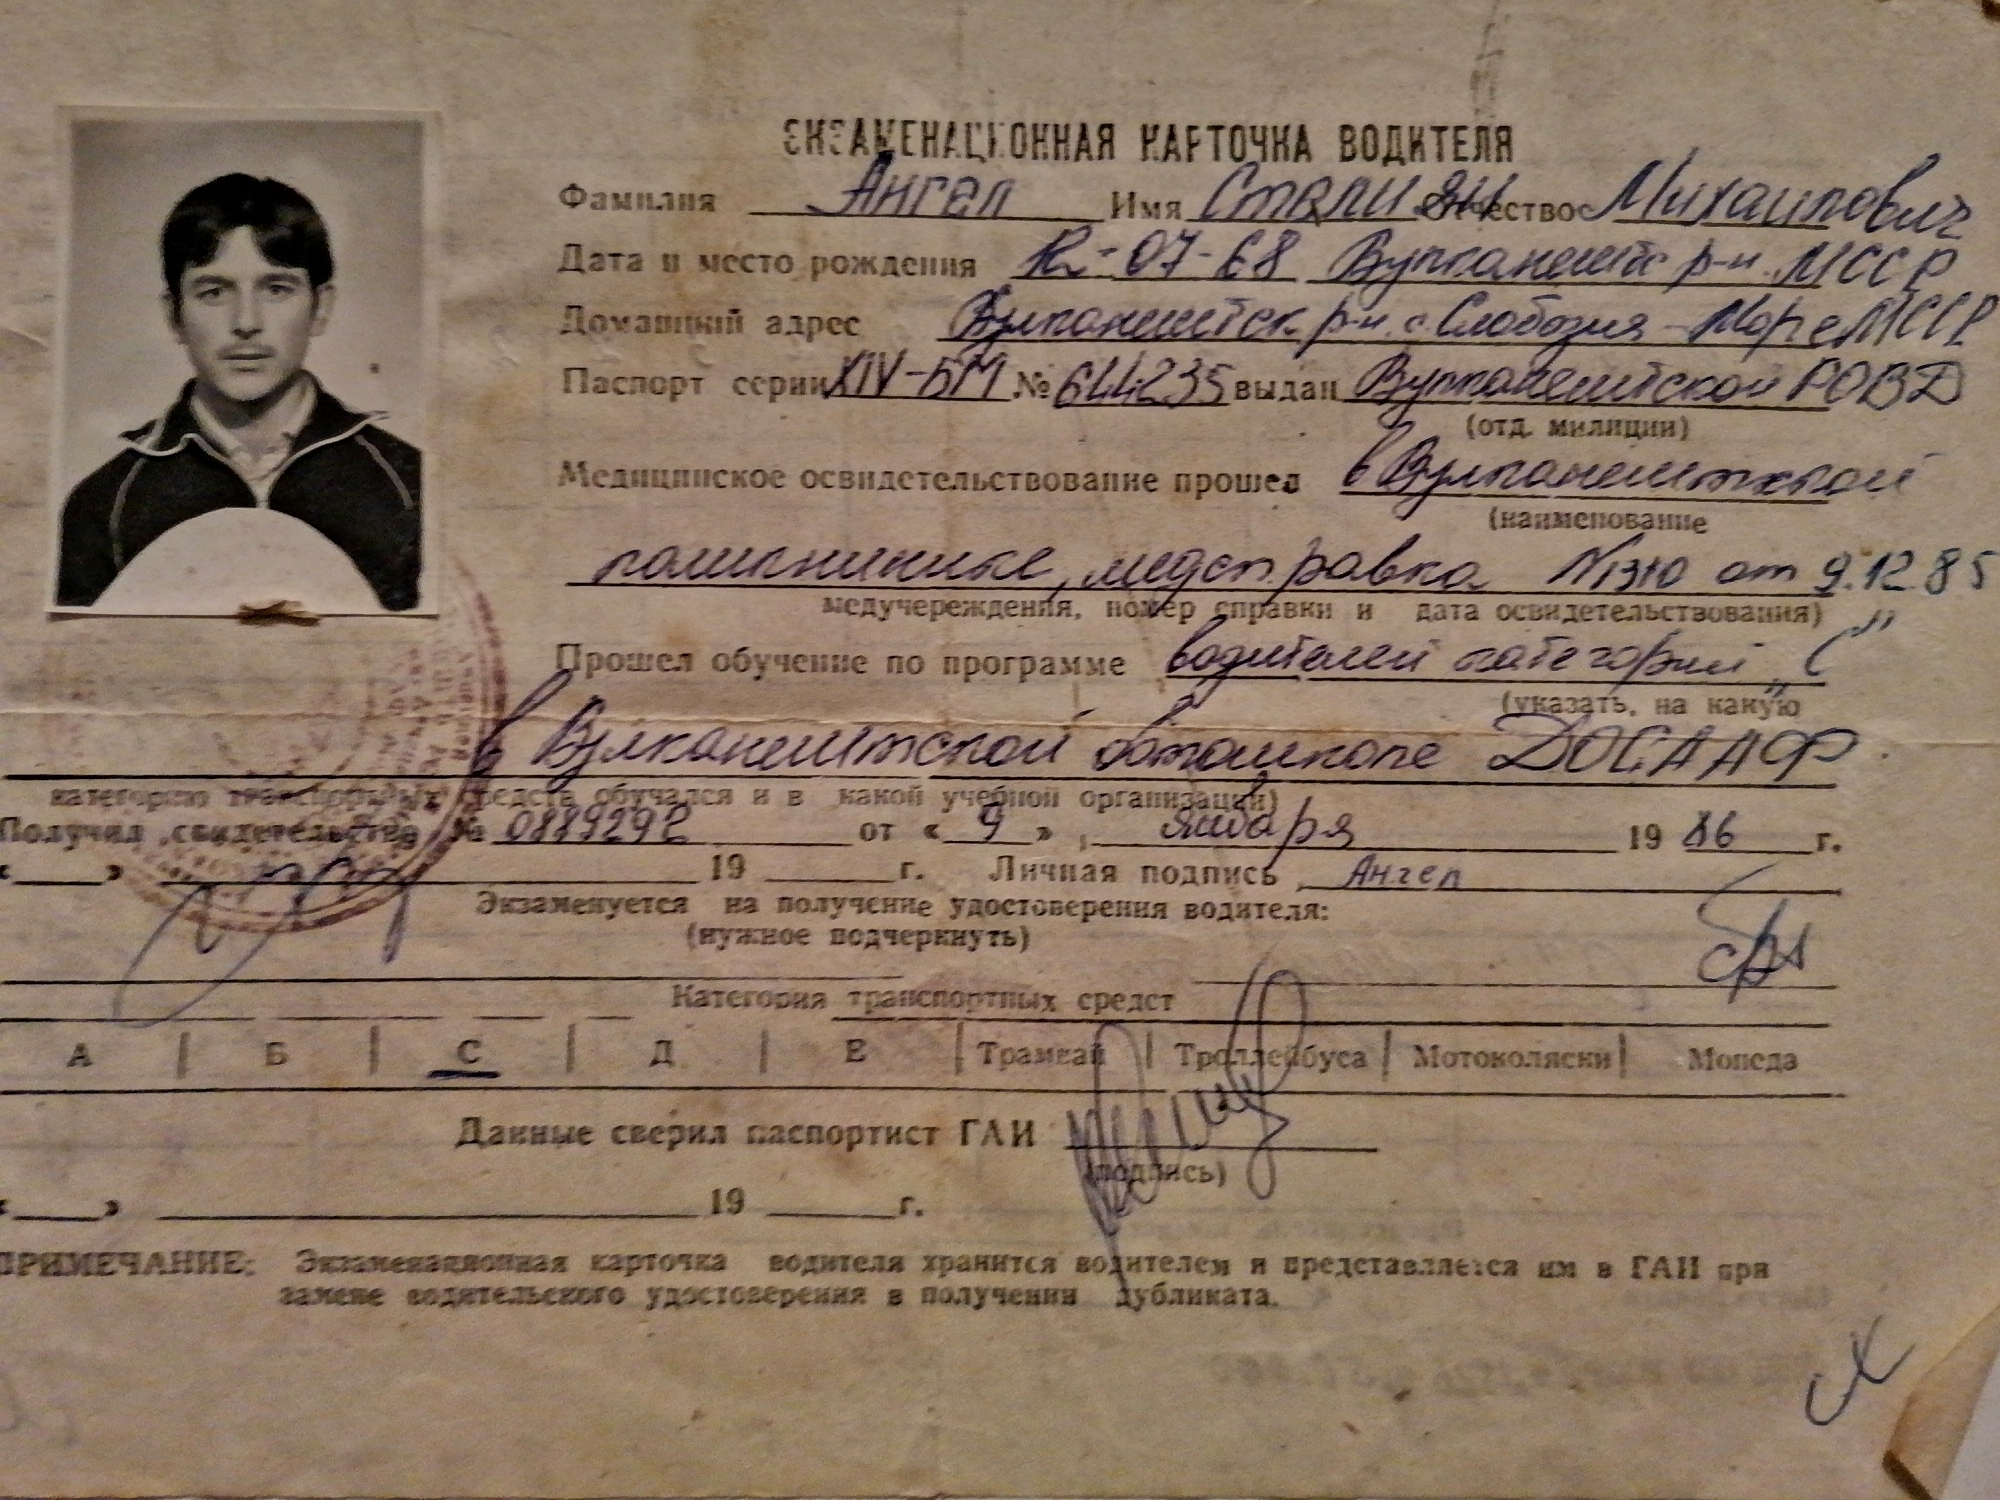 ЕКЗАМЕНАЦИОННАЯ КАРТОЧКА ВОДИТЕЛЯ
Фамилия Ангел Имя Стелиян Отчество Михайлович
Дата и место рождения 12-07-68 Вулканештс р-н МССР
Домашний адрес Вулканештск. р-н. с. Слобозия-Маре МССР
Паспорт серии XIV-БМ № 644235 выдан Вулканештской РОВД
(отд. милиции)
Медицинское освидетельствование прошел в Вулканештской
(наименование
поликлинике, медсправка от 9.12.85
медучереждения, номер справки и дата освидетельствования)
Прошел обучение по программе водителей категории „С"
(указать, на какую
в Вулканештской автошколе ДОСААФ
категорию транспортных средств обучался и в какой учебной организации)
Получил свидетельство № 0889292 от « 9 » января 19 86 г.
« » 19 г. Личная подпись Ангел
Экзаменуется на получение удостоверения водителя:
(нужное подчеркнуть)
Категория транспортных средст
А | Б | С | Д | Е | Трамвай | Троллейбуса | Мотоколяски | Мопеда
Данные сверил паспортист ГАИ
(подпись)
« » 19 г.
ПРИМЕЧАНИЕ: Экзаменационная карточка водителя хранится водителем и представляется им в ГАИ при
замене водительского удостоверения и получении дубликата.